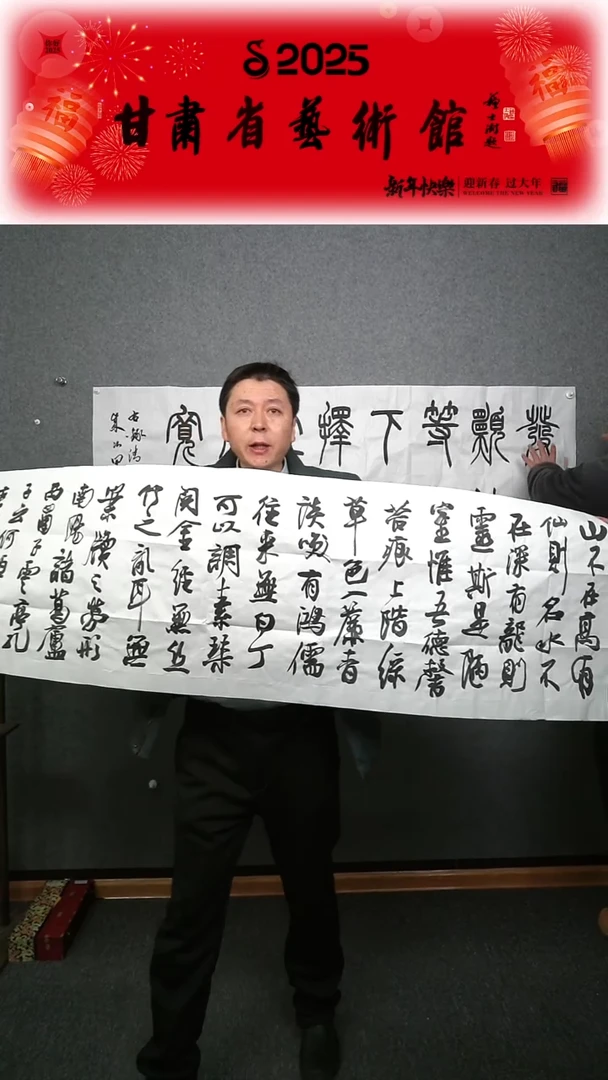 2025
甘肅省藝術館
新年快樂
迎新春 过大年
WELCOME THE NEW YEAR
福
福
山不在高有
仙則名水不
在深有龍則
靈斯是陋
室惟吾德馨
苔痕上階綠
草色入簾青
談咲有鴻儒
往來無白丁
可以調素琴
閱金經無絲
竹之亂耳無
案牘之勞形
南陽諸葛廬
西蜀子雲亭孔
子云何
發顯等下擇